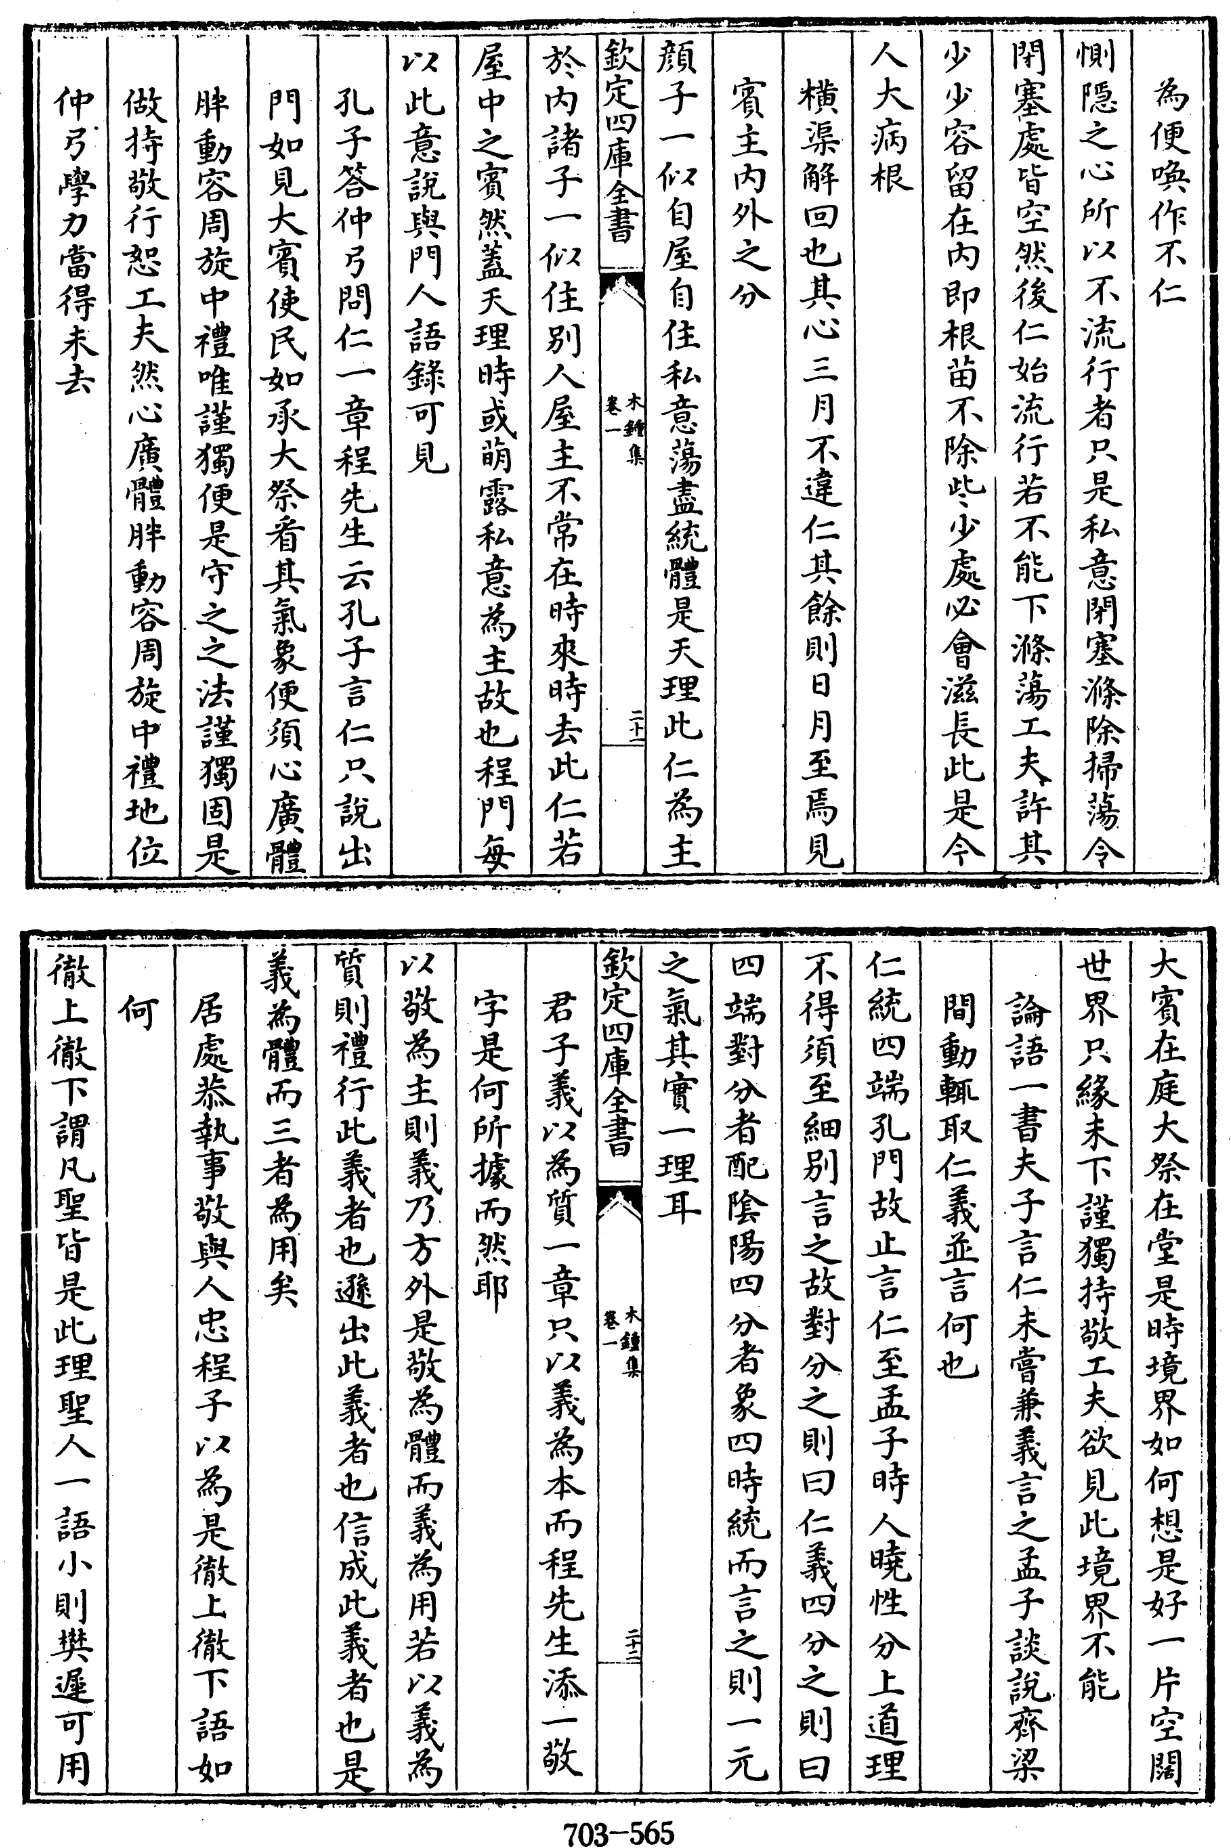 為便喚作不仁
惻隠之心所以不流行者只是私意閉塞滌除掃蕩令
閉塞處皆空然後仁始流行若不能下滌蕩工夫許其
少少容留在内即根苗不除些少處必會滋長此是今
人大病根
橫渠解回也其心三月不違仁其餘則日月至焉見
賓主内外之分
顔子一似自屋自住私意蕩盡統體是天理此仁為主
欽定四庫全書
木鍾集
卷一
二十一
於内諸子一似住别人屋主不常在時來時去此仁若
屋中之賓然蓋天理時或萌露私意為主故也程門每
以此意說與門人語錄可見
孔子答仲弓問仁一章程先生云孔子言仁只說出
門如見大賓使民如承大祭看其氣象便須心廣體
胖動容周旋中禮唯謹獨便是守之之法謹獨固是
做持敬行恕工夫然心廣體胖動容周旋中禮地位
仲弓學力當得未去
大賓在庭大祭在堂是時境界如何想是好一片空闊
世界只緣未下謹獨持敬工夫欲見此境界不能
論語一書夫子言仁未嘗兼義言之孟子談說齊梁
間動輒取仁義並言何也
仁統四端孔門故止言仁至孟子時人曉性分上道理
不得須至細别言之故對分之則曰仁義四分之則曰
四端對分者配陰陽四分者象四時統而言之則一元
之氣其實一理耳
欽定四庫全書
木鍾集
卷一
二十二
君子義以為質一章只以義為本而程先生添一敬
字是何所據而然耶
以敬為主則義乃方外是敬為體而義為用若以義為
質則禮行此義者也遜出此義者也信成此義者也是
義為體而三者為用矣
居處恭執事敬與人忠程子以為是徹上徹下語如
何
徹上徹下謂凡聖皆是此理聖人一語小則樊遲可用
703-565